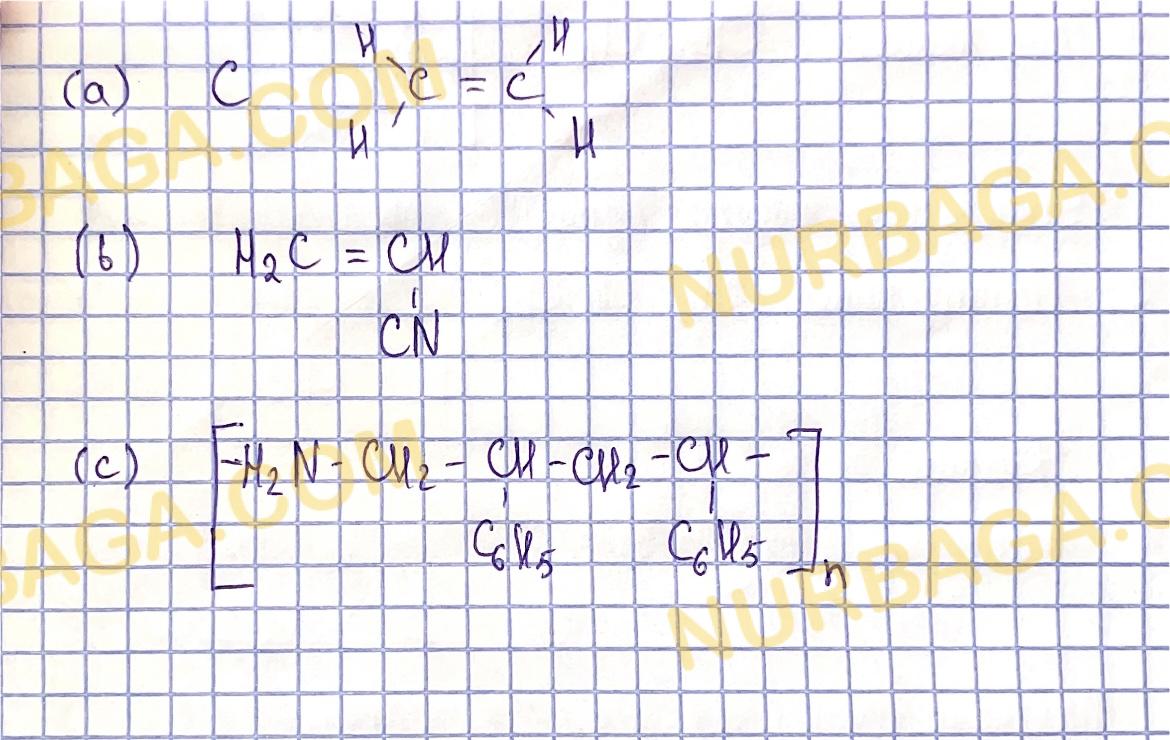 H H
(a) C C = C
H H
(b) H₂C = CH
CN
(c) [-H₂N - CH₂ - CH - CH₂ - CH -]n
C₆H₅ C₆H₅
NURBAGA.COM
NURBAGA.COM
NURBAGA.COM
NURBAGA.COM